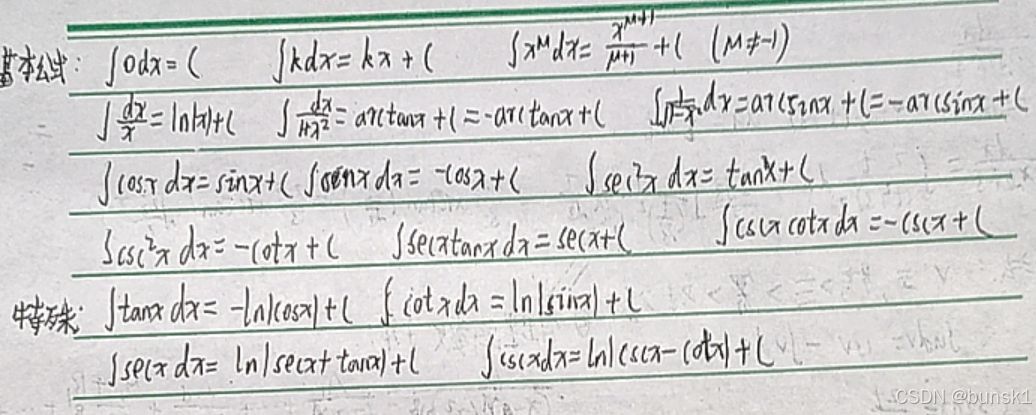 基本公式: ∫0dx=C ∫kdx=kx+C ∫x^μdx=x^(μ+1)/(μ+1)+C (μ≠-1)
∫dx/x=ln|x|+C ∫dx/(1+x²)=arctanx+C=-arctanx+C ∫1/√(1-x²)dx=arcsinx+C=-arcsinx+C
∫cosxdx=sinx+C ∫sinxdx=-cosx+C ∫sec²xdx=tanx+C
∫csc²xdx=-cotx+C ∫secxtanxdx=secx+C ∫cscxcotxdx=-cscx+C
特殊: ∫tanxdx=-ln|cosx|+C ∫cotxdx=ln|sinx|+C
∫secxdx=ln|secx+tanx|+C ∫cscxdx=ln|cscx-cotx|+C
CSDN @bunsk1